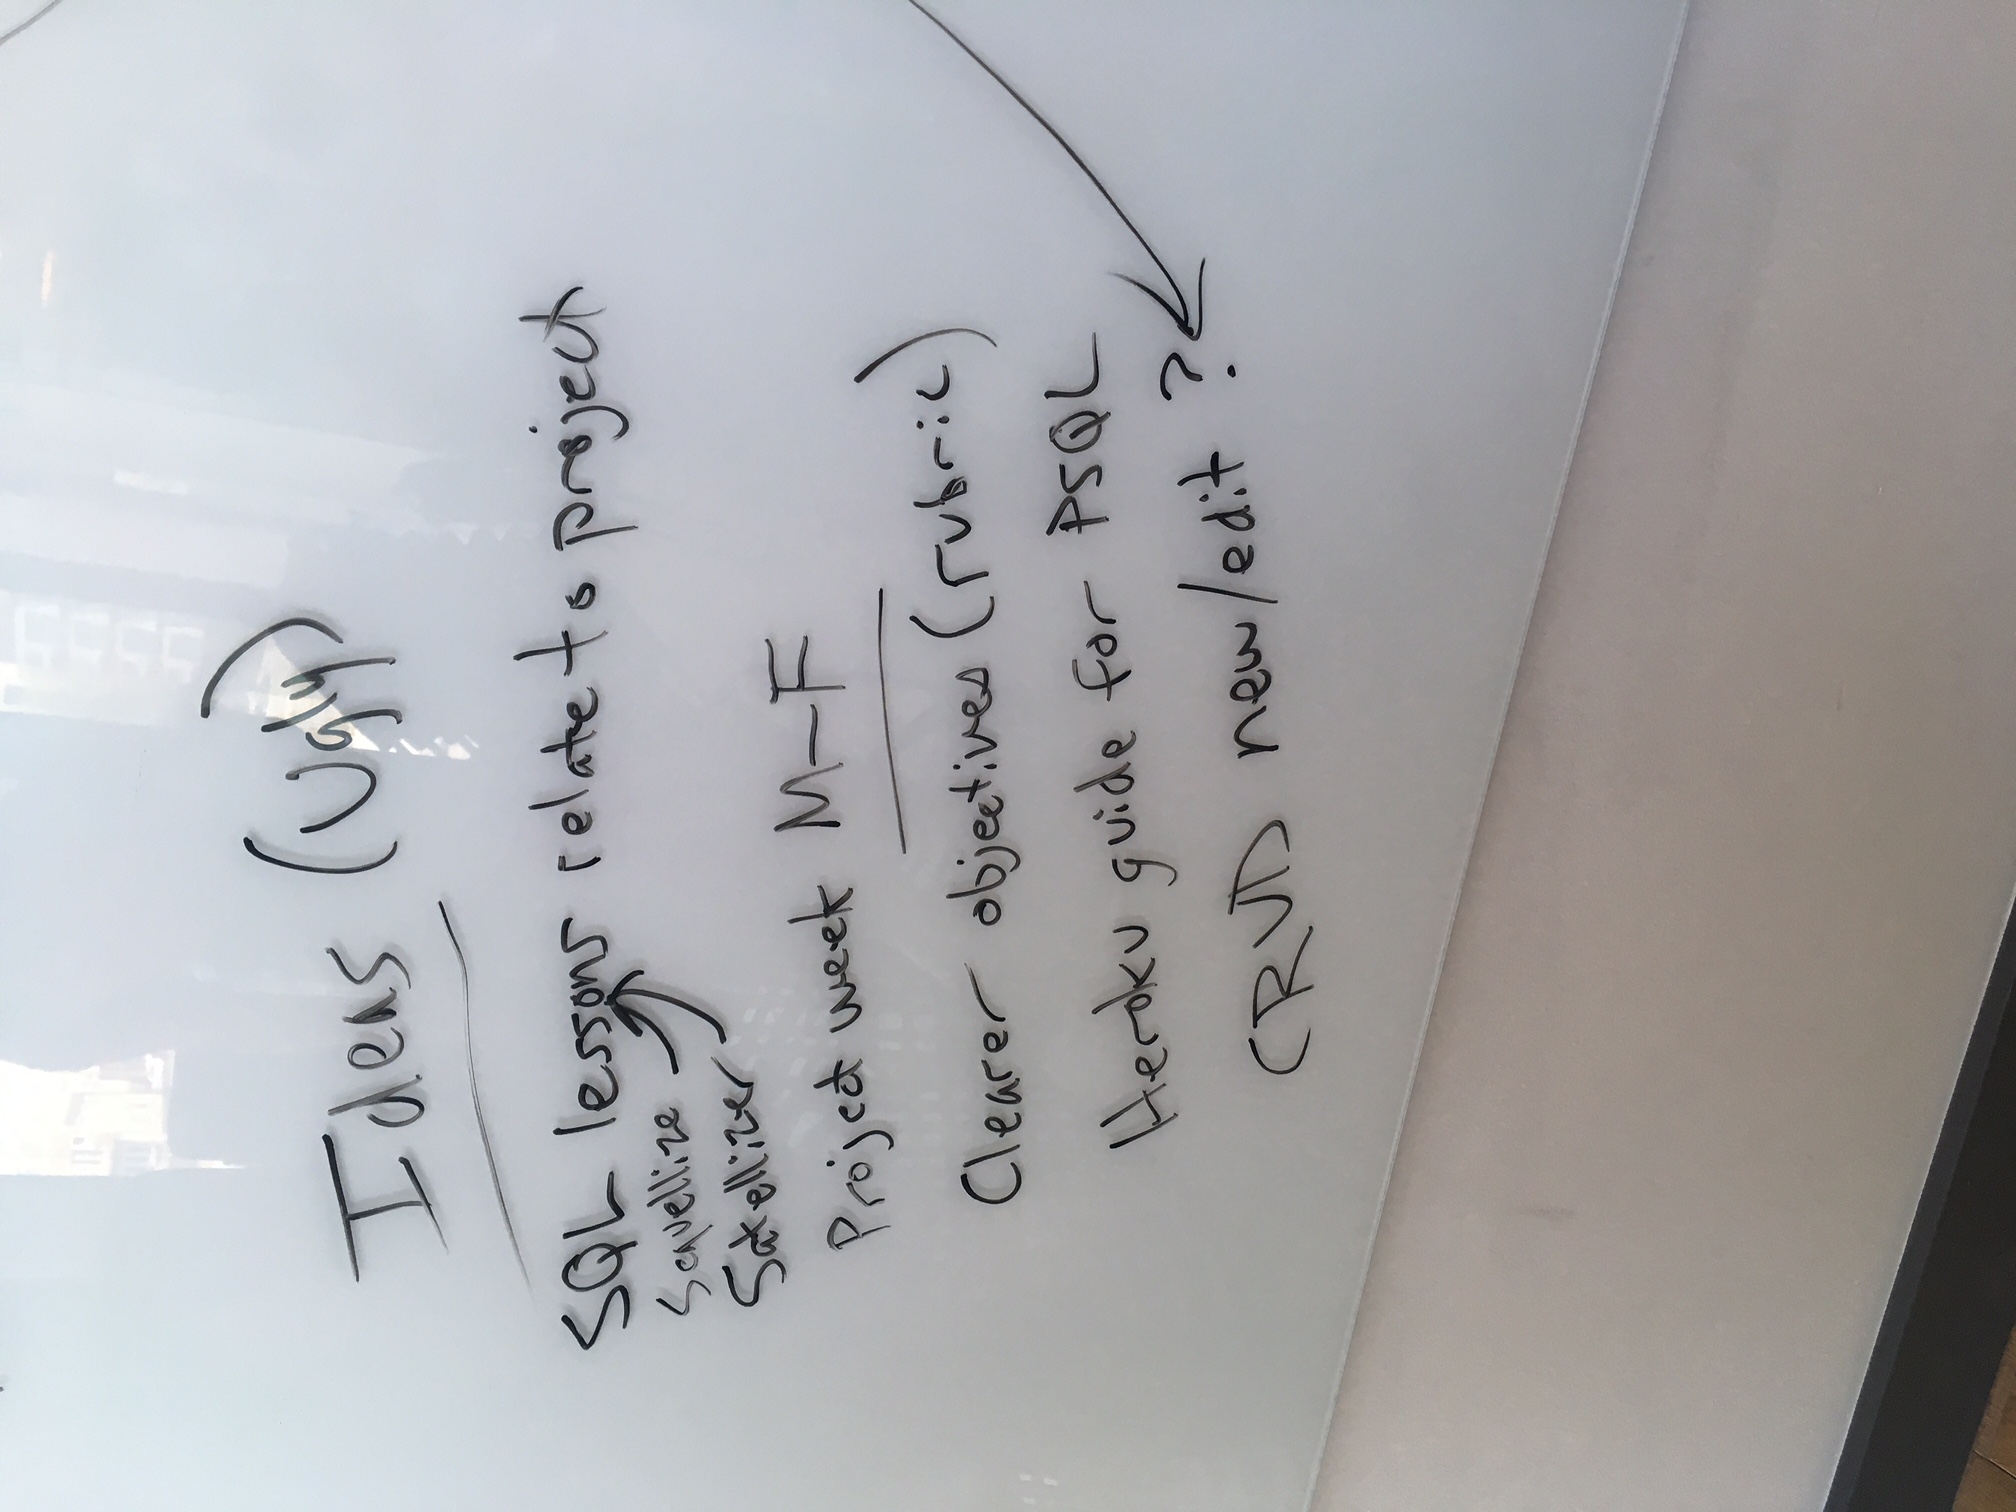 Ideas (Ugly)
SQL lessons relate to project
Sequellize
Satellizer
Project week M-F
Clearer objectives (rubric)
Heroku guide for PSQL
CRUD new/edit ?